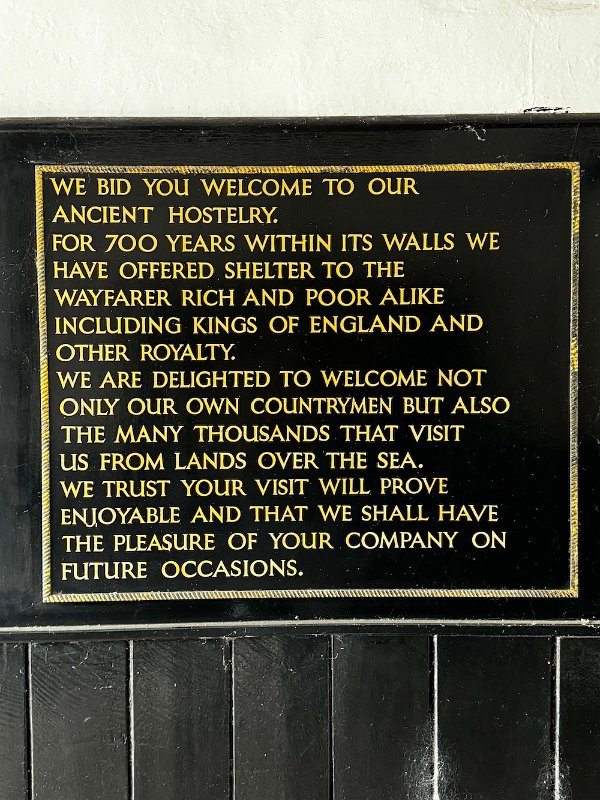 WE BID YOU WELCOME TO OUR
ANCIENT HOSTELRY.
FOR 700 YEARS WITHIN ITS WALLS WE
HAVE OFFERED SHELTER TO THE
WAYFARER RICH AND POOR ALIKE
INCLUDING KINGS OF ENGLAND AND
OTHER ROYALTY.
WE ARE DELIGHTED TO WELCOME NOT
ONLY OUR OWN COUNTRYMEN BUT ALSO
THE MANY THOUSANDS THAT VISIT
US FROM LANDS OVER THE SEA.
WE TRUST YOUR VISIT WILL PROVE
ENJOYABLE AND THAT WE SHALL HAVE
THE PLEASURE OF YOUR COMPANY ON
FUTURE OCCASIONS.